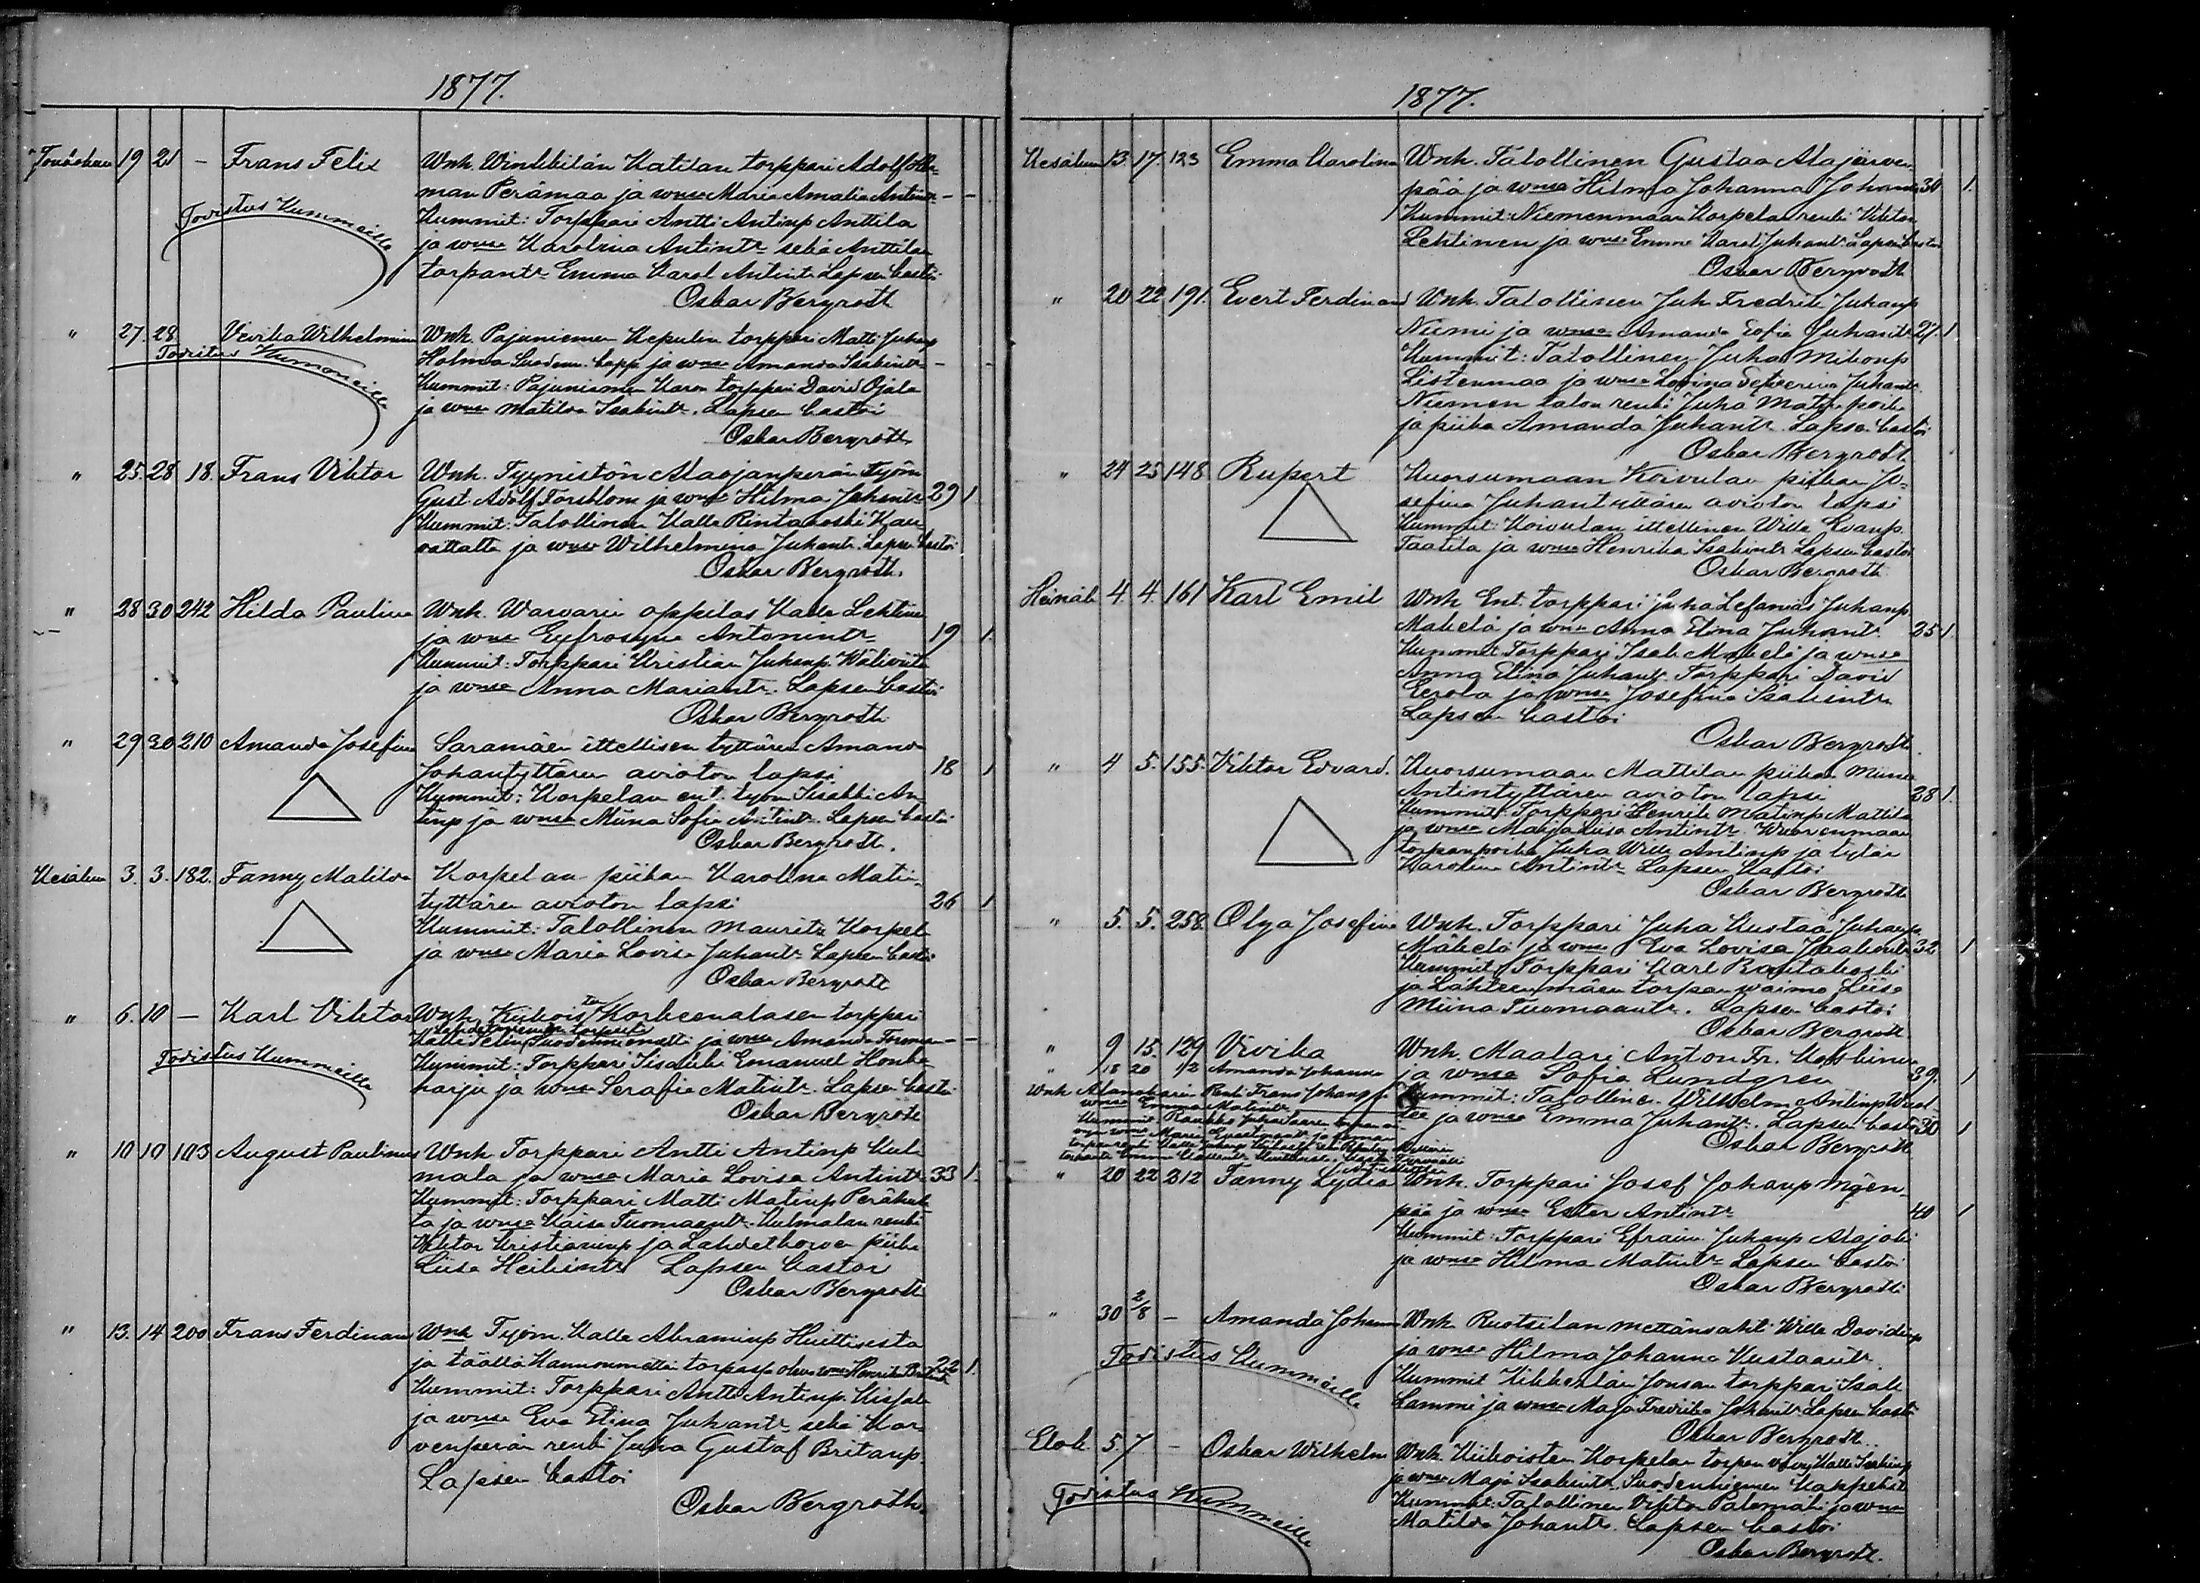 1877.
Toukokuu 19 21 — Frans Felix Wnh. Winkkilän Katilan torppari Adolf Her-
man Perämaa ja wmo Maria Amalia Antintr — —
Todistus Kummeille
Kummit: Torppari Antti Antinp Anttila
ja wmo Karolina Antintr sekä Anttilan
torpantr Emma Karol Antintr Lapsen kastoi
Oskar Bergroth
" 27. 28 Vivika Wilhelmina Wnh. Pajuniemen Kepulin torppari Matti Juhanp
Todistus Kummeille
Holma Suoden. kapp ja wmo Amanda Isakintr — —
Kummit: Pajuniemen Karon torppari David Ojala
ja wmo Matilda Isakintr. Lapsen kastoi
Oskar Bergroth
" 25. 28 18. Frans Viktor Wnh. Tyynistön Alaojanperän Työm
Gust. Adolf Forsblom ja wmo Hilma Johantr 29 1
Kummit: Talollinen Kalle Rintakoski Kau
vattalta ja wmo Wilhelmina Juhantr. Lapsen kastoi
Oskar Bergroth.
" 28 30 242 Hilda Paulina Wnh. Warvarin oppilas Kalle Lehtinen
ja wmo Eyfrosyne Antonintr 19 1
Kummit: Torppari Kristian Juhanp. Waliviita
ja wmo Anna Mariantr. Lapsen kastoi
Oskar Bergroth
" 29 30 210 Amanda Josefina Saramäen ittellisen tyttären Amanda
Johantyttären avioton lapsi 18 1
Kummit: Korpelan ent. työm Iisakki An
tinp ja wmo Miina Sofia Antintr. Lapsen kastoi
Oskar Bergroth.
Kesäkuu 3. 3. 182. Fanny Matilda Korpelan piikan Karolina Matin-
tyttären avioton lapsi 26 1
Kummit: Talollinen Maurits Korpela
ja wmo Maria Lovisa Juhantr. Lapsen kastoi
Oskar Bergroth
" 6. 10 — Karl Viktor Wnh. Kiikoisten Korkeenalasen torppari
Kalle Felin Suodenniemeltä ja wmo Amanda Fransn — —
Todistus Kummeille
Kummit: Torppari Iisakki Emanuel Honka-
harju ja wmo Serafia Matintr. Lapsen kastoi
Oskar Bergroth
" 10 10 103 August Paulinus Wnh. Torppari Antti Antinp Kul-
mala ja wmo Maria Lovisa Antintr 33 1.
Kummit: Torppari Matti Matinp Peräkul-
la ja wmo Kaisa Tuomaantr. Kulmalan renki
Viktor Kristianinp ja Lahdetkorven piika
Liisa Heikintr Lapsen kastoi
Oskar Bergroth
" 13. 14 200 Frans Ferdinand Wnh Työm. Kalle Abraminp Huittisista
ja täällä Kannonmetän torpassa oleva wmo Henrika 22 1.
Kummit: Torppari Antti Antinp. Kiisala
ja wmo Eva Stina Juhantr sekä Kor
venperän renki Juha Gustaf Britanp.
Lapsen kastoi
Oskar Bergroth.
1877.
Kesäkuu 13. 17. 123 Emma Karolina Wnh. Talollinen Gustaa Alajärven-
pää ja wmo Hilma Johanna Johantr 30 1.
Kummit: Niemenmaan Korpelan renki Viktor
Lehtinen ja wmo Emma Karol Juhantr Lapsen kastoi
Oskar Bergroth
" 20 22 191. Evert Ferdinand Wnh. Talollinen Juh. Fredrik Juhanp
Niemi ja wmo Amanda Sofia Juhantr 27. 1
Kummit: Talollinen Juha Mikonp
Listenmaa ja wmo Lovina Severina Juhantr
Niemen talon renki Juha Matinpoika
ja piika Amanda Juhantr. Lapsen kastoi
Oskar Bergroth
" 24 25 148 Rupert Kuorsumaan Koivulan piikan Jo-
sefina Juhantyttären avioton lapsi
Kummit: Koivulan ittellinen Wille Evanp.
Taatila ja wmo Henrika Isakintr Lapsen kastoi
Oskar Bergroth
Heinäk 4. 4. 161 Karl Emil Wnh Ent. torppari Juha Lefanias Juhanp
Mäkelä ja wmo Anna Stina Juhantr. 35 1.
Kummit: Torppari Isak Mäkelä ja wmo
Anna Stina Juhantr. Torppari David
Eerola ja wmo Josefina Isakintr
Lapsen kastoi
Oskar Bergroth.
" 4 5. 155. Viktor Edvard. Kuorsumaan Mattilan piikan Miina
Antintyttären avioton lapsi 38 1.
Kummit: Torppari Henrik Matinp Mattila
ja wmo Maija Liisa Antintr. Wuorenmaan
torpanpoika Juha Wille Antinp ja tytär
Karolina Antintr Lapsen kastoi
Oskar Bergroth
" 5. 5. 258. Olga Josefina Wnh. Torppari Juha Kustaa Juhanp
Mäkelä ja wmo Eva Lovisa Jaakintr 32 1
Kummit: Torppari Karl Rautakoski
ja Lähteenmäen torpan waimo Liisa
Miina Tuomaantr. Lapsen kastoi
Oskar Bergroth
" 9 15. 129 Vivika Wnh. Maalari Anton Fr. Koskinen
ja wmo Sofia Lundgren 39. 1
Kummit: Talollinen Wilhelm Antinp Wesi-
ja wmo Emma Juhantr. Lapsen kastoi
Oskar Bergroth
" 18 20 Amanda Johanna 30 1
Wnh Renki Frans Johanp ja
wmo Emma Matintr
" 20 22 212 Fanny Lydia Wnh. Torppari Josef Johanp Mäen-
pää ja wmo Ester Antintr 40 1
Kummit: Torppari Efraim Juhanp Alajoki
ja wmo Hilma Matintr Lapsen kastoi
Oskar Bergroth
" 30 2/8 — Amanda Johanna Wnh. Ruotsilan mettänvahti Wille Davidinp
ja wmo Hilma Johanna Kustaantr.
Todistus Kummeille
Kummit Kikkelän Jonsan torppari Isak
Lammi ja wmo Maja Fredrika Johantr Lapsen kastoi
Oskar Bergroth.
Elok 5 7 — Oskar Wilhelm Wnh. Kiikoisten Korpelan torpan Kalle Isakinp
ja wmo Maja Isakintr Suodenniemen Kappelista
Todistus Kummeille
Kummit: Talollinen Viktor Palomäki ja wmo
Matilda Johantr. Lapsen kastoi
Oskar Bergroth.